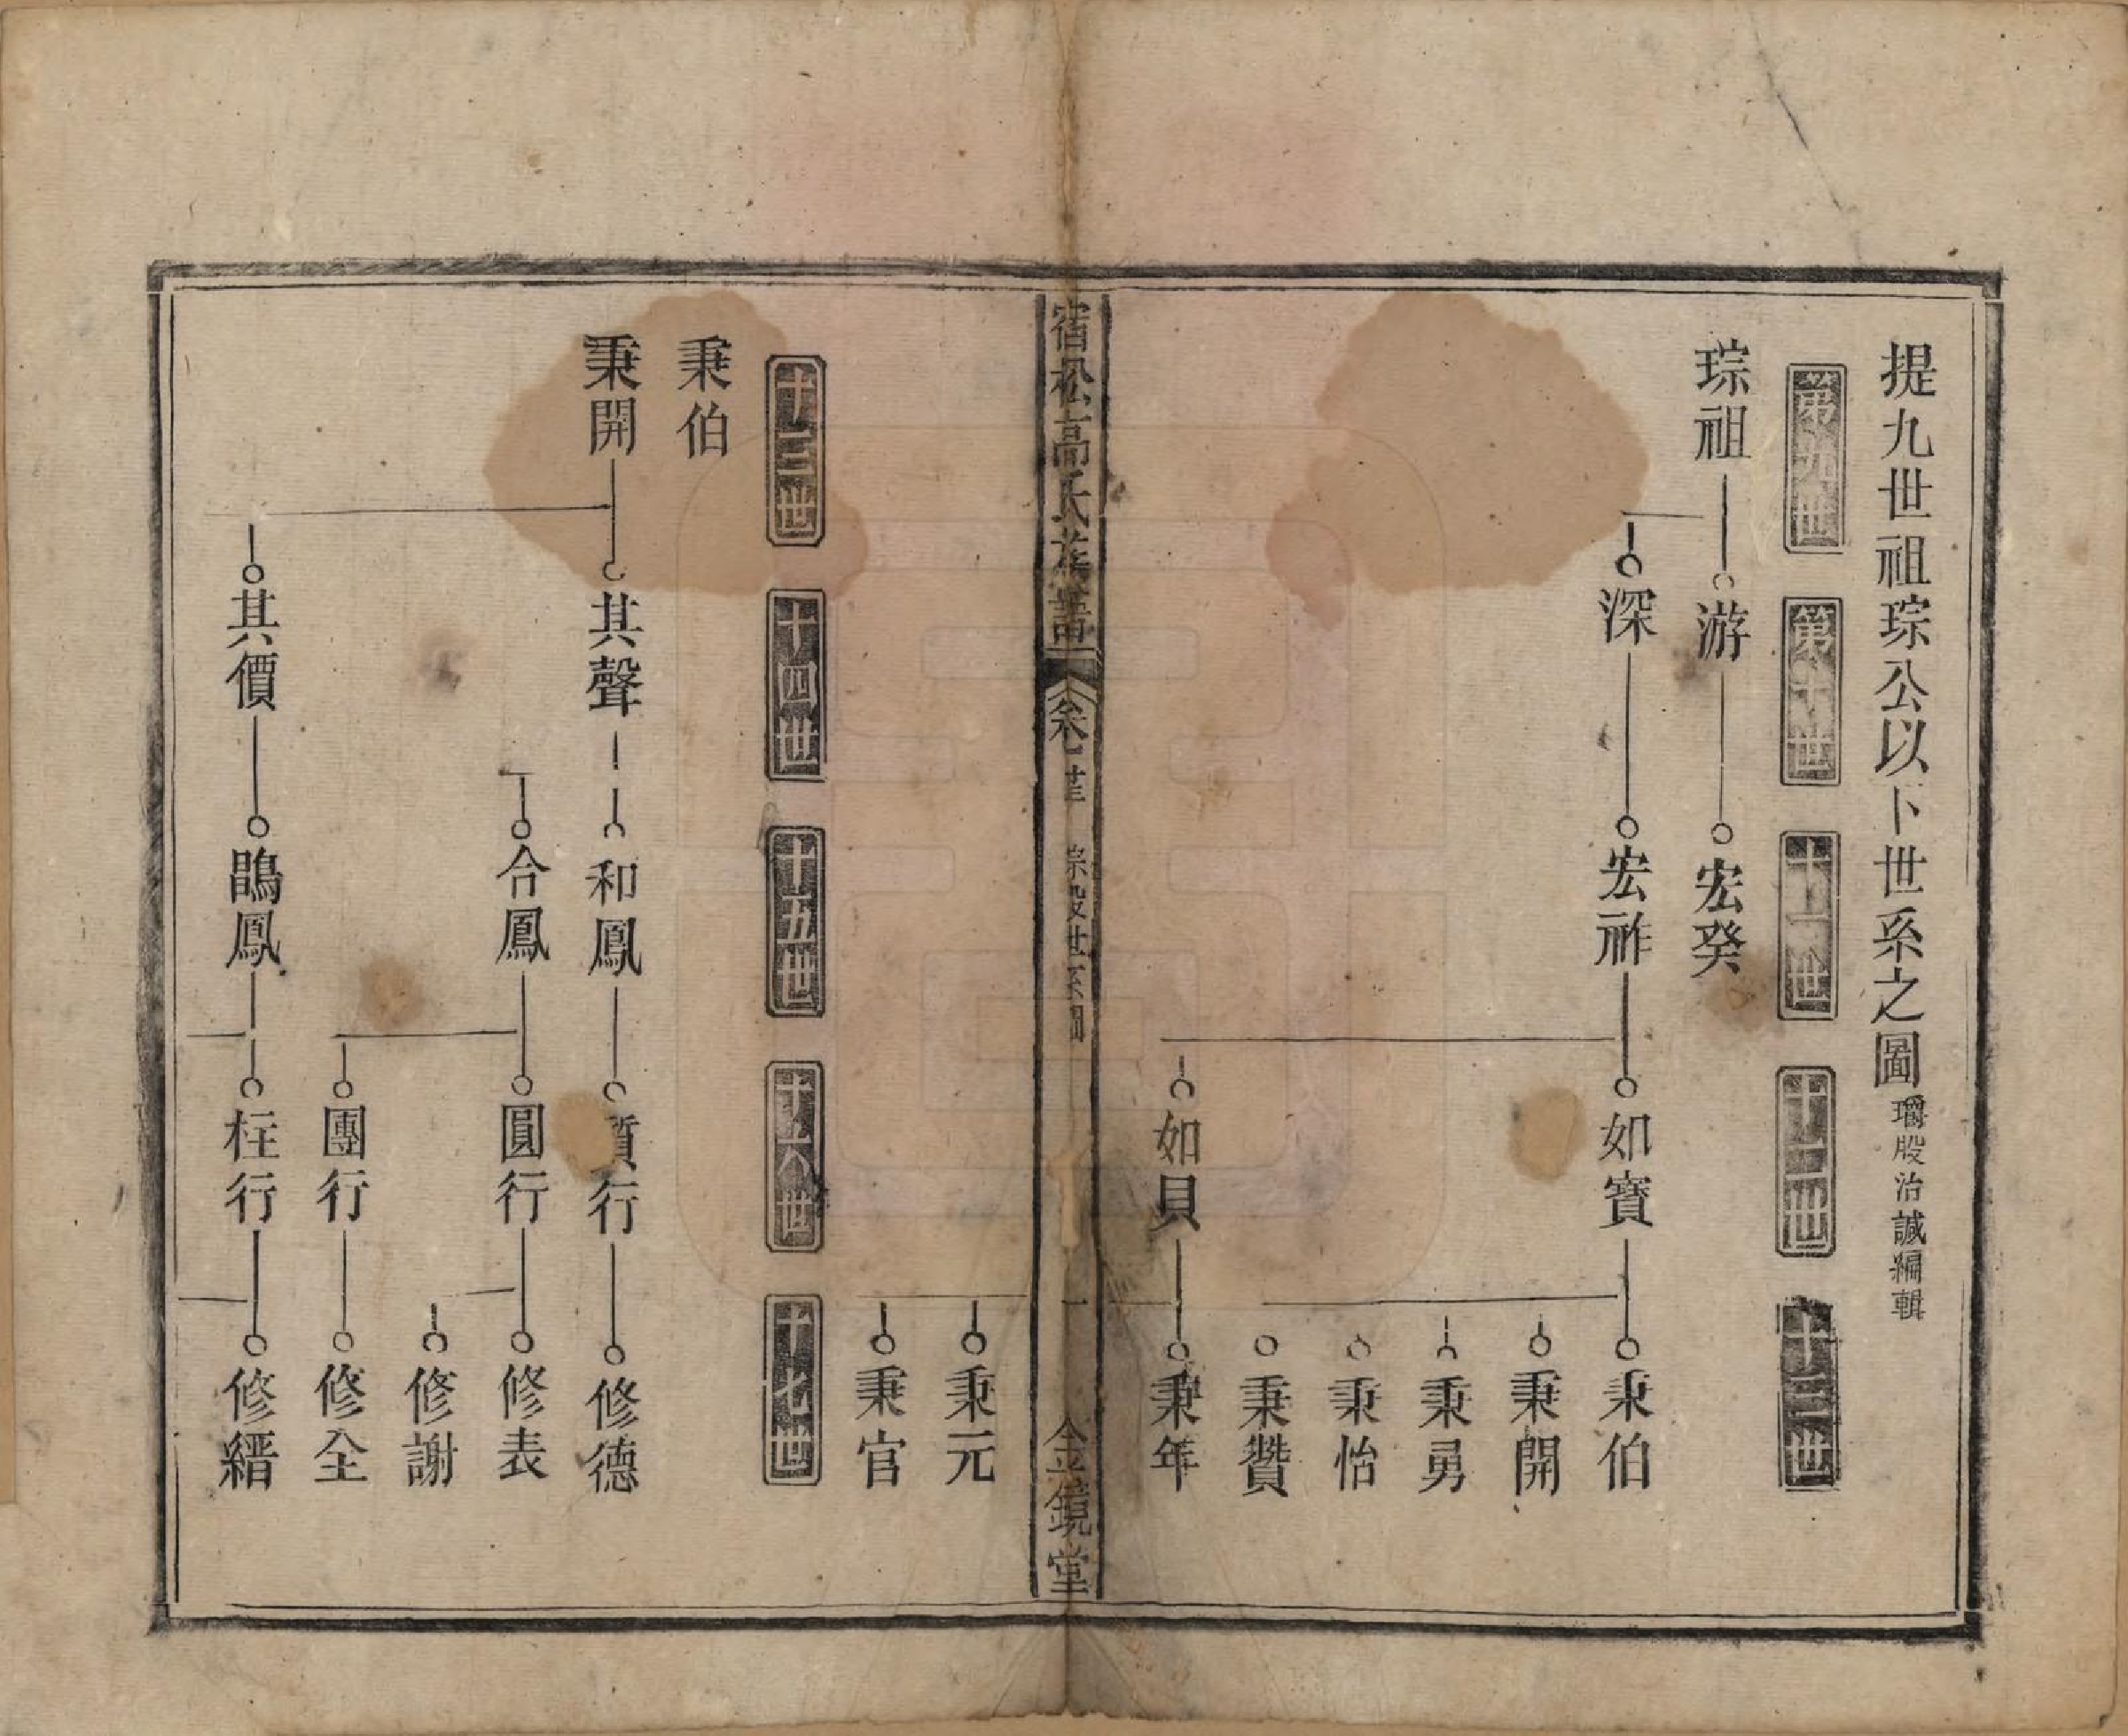 提九世祖琮公以下世系之圖 璿股治誠編輯
第九世 第十世 十一世 十二世 十三世
琮祖 游 宏癸
深 宏祚 如寶 秉伯
秉開
秉勇
秉怡
秉贊
如貝 秉年
宿松高氏族譜 卷廿 琮股世系圖 一 金鏡堂
秉元
秉官
十三世 十四世 十五世 十六世 十七世
秉伯
秉開 其聲 和鳳 質行 修德
合鳳 圓行 修表
修謝
團行 修全
其價 鵾鳳 柱行 修縉